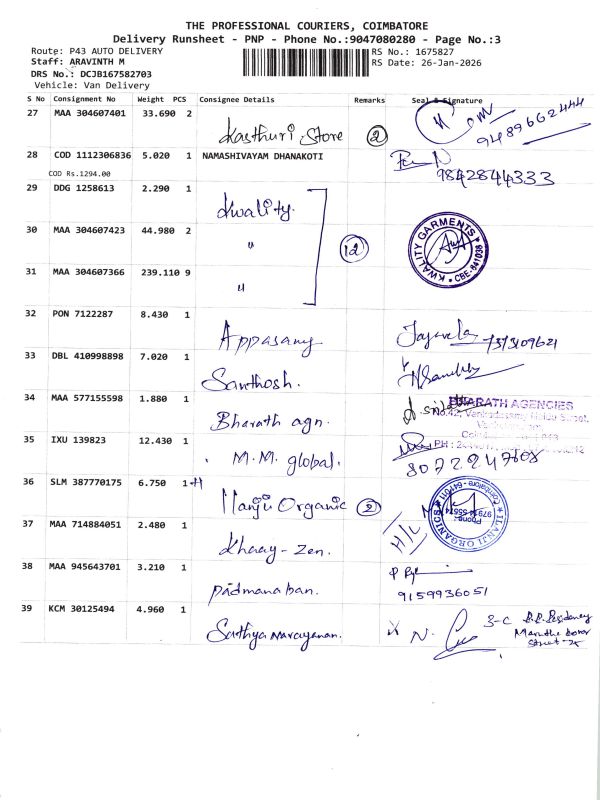 THE PROFESSIONAL COURIERS, COIMBATORE
Delivery Runsheet - PNP - Phone No.:9047080280 - Page No.:3
Route: P43 AUTO DELIVERY RS No.: 1675827
Staff: ARAVINTH M RS Date: 26-Jan-2026
DRS No.: DCJB167582703
Vehicle: Van Delivery
S No Consignment No Weight PCS Consignee Details Remarks Seal & Signature
27 MAA 304607401 33.690 2 Kasthuri Store 2 9489662444
28 COD 1112306836 5.020 1 NAMASHIVAYAM DHANAKOTI
COD Rs.1294.00 9842844333
29 DDG 1258613 2.290 1 Kwality.
30 MAA 304607423 44.980 2 " 12 KWALITY GARMENTS CBE-641038
31 MAA 304607366 239.110 9 "
32 PON 7122287 8.430 1 Appasamy
33 DBL 410998898 7.020 1 Santhosh.
34 MAA 577155598 1.880 1 Bharath agn. BHARATH AGENCIES
35 IXU 139823 12.430 1 M.M. global. 8072247508
36 SLM 387770175 6.750 1+1 Ilanji Organic 2 ILANJI ORGANICS Phone:
37 MAA 714884051 2.480 1 Khaay-Zen. H/L
38 MAA 945643701 3.210 1 Padmanaban. 9159936051
39 KCM 30125494 4.960 1 Sathya Narayanan. 3-C